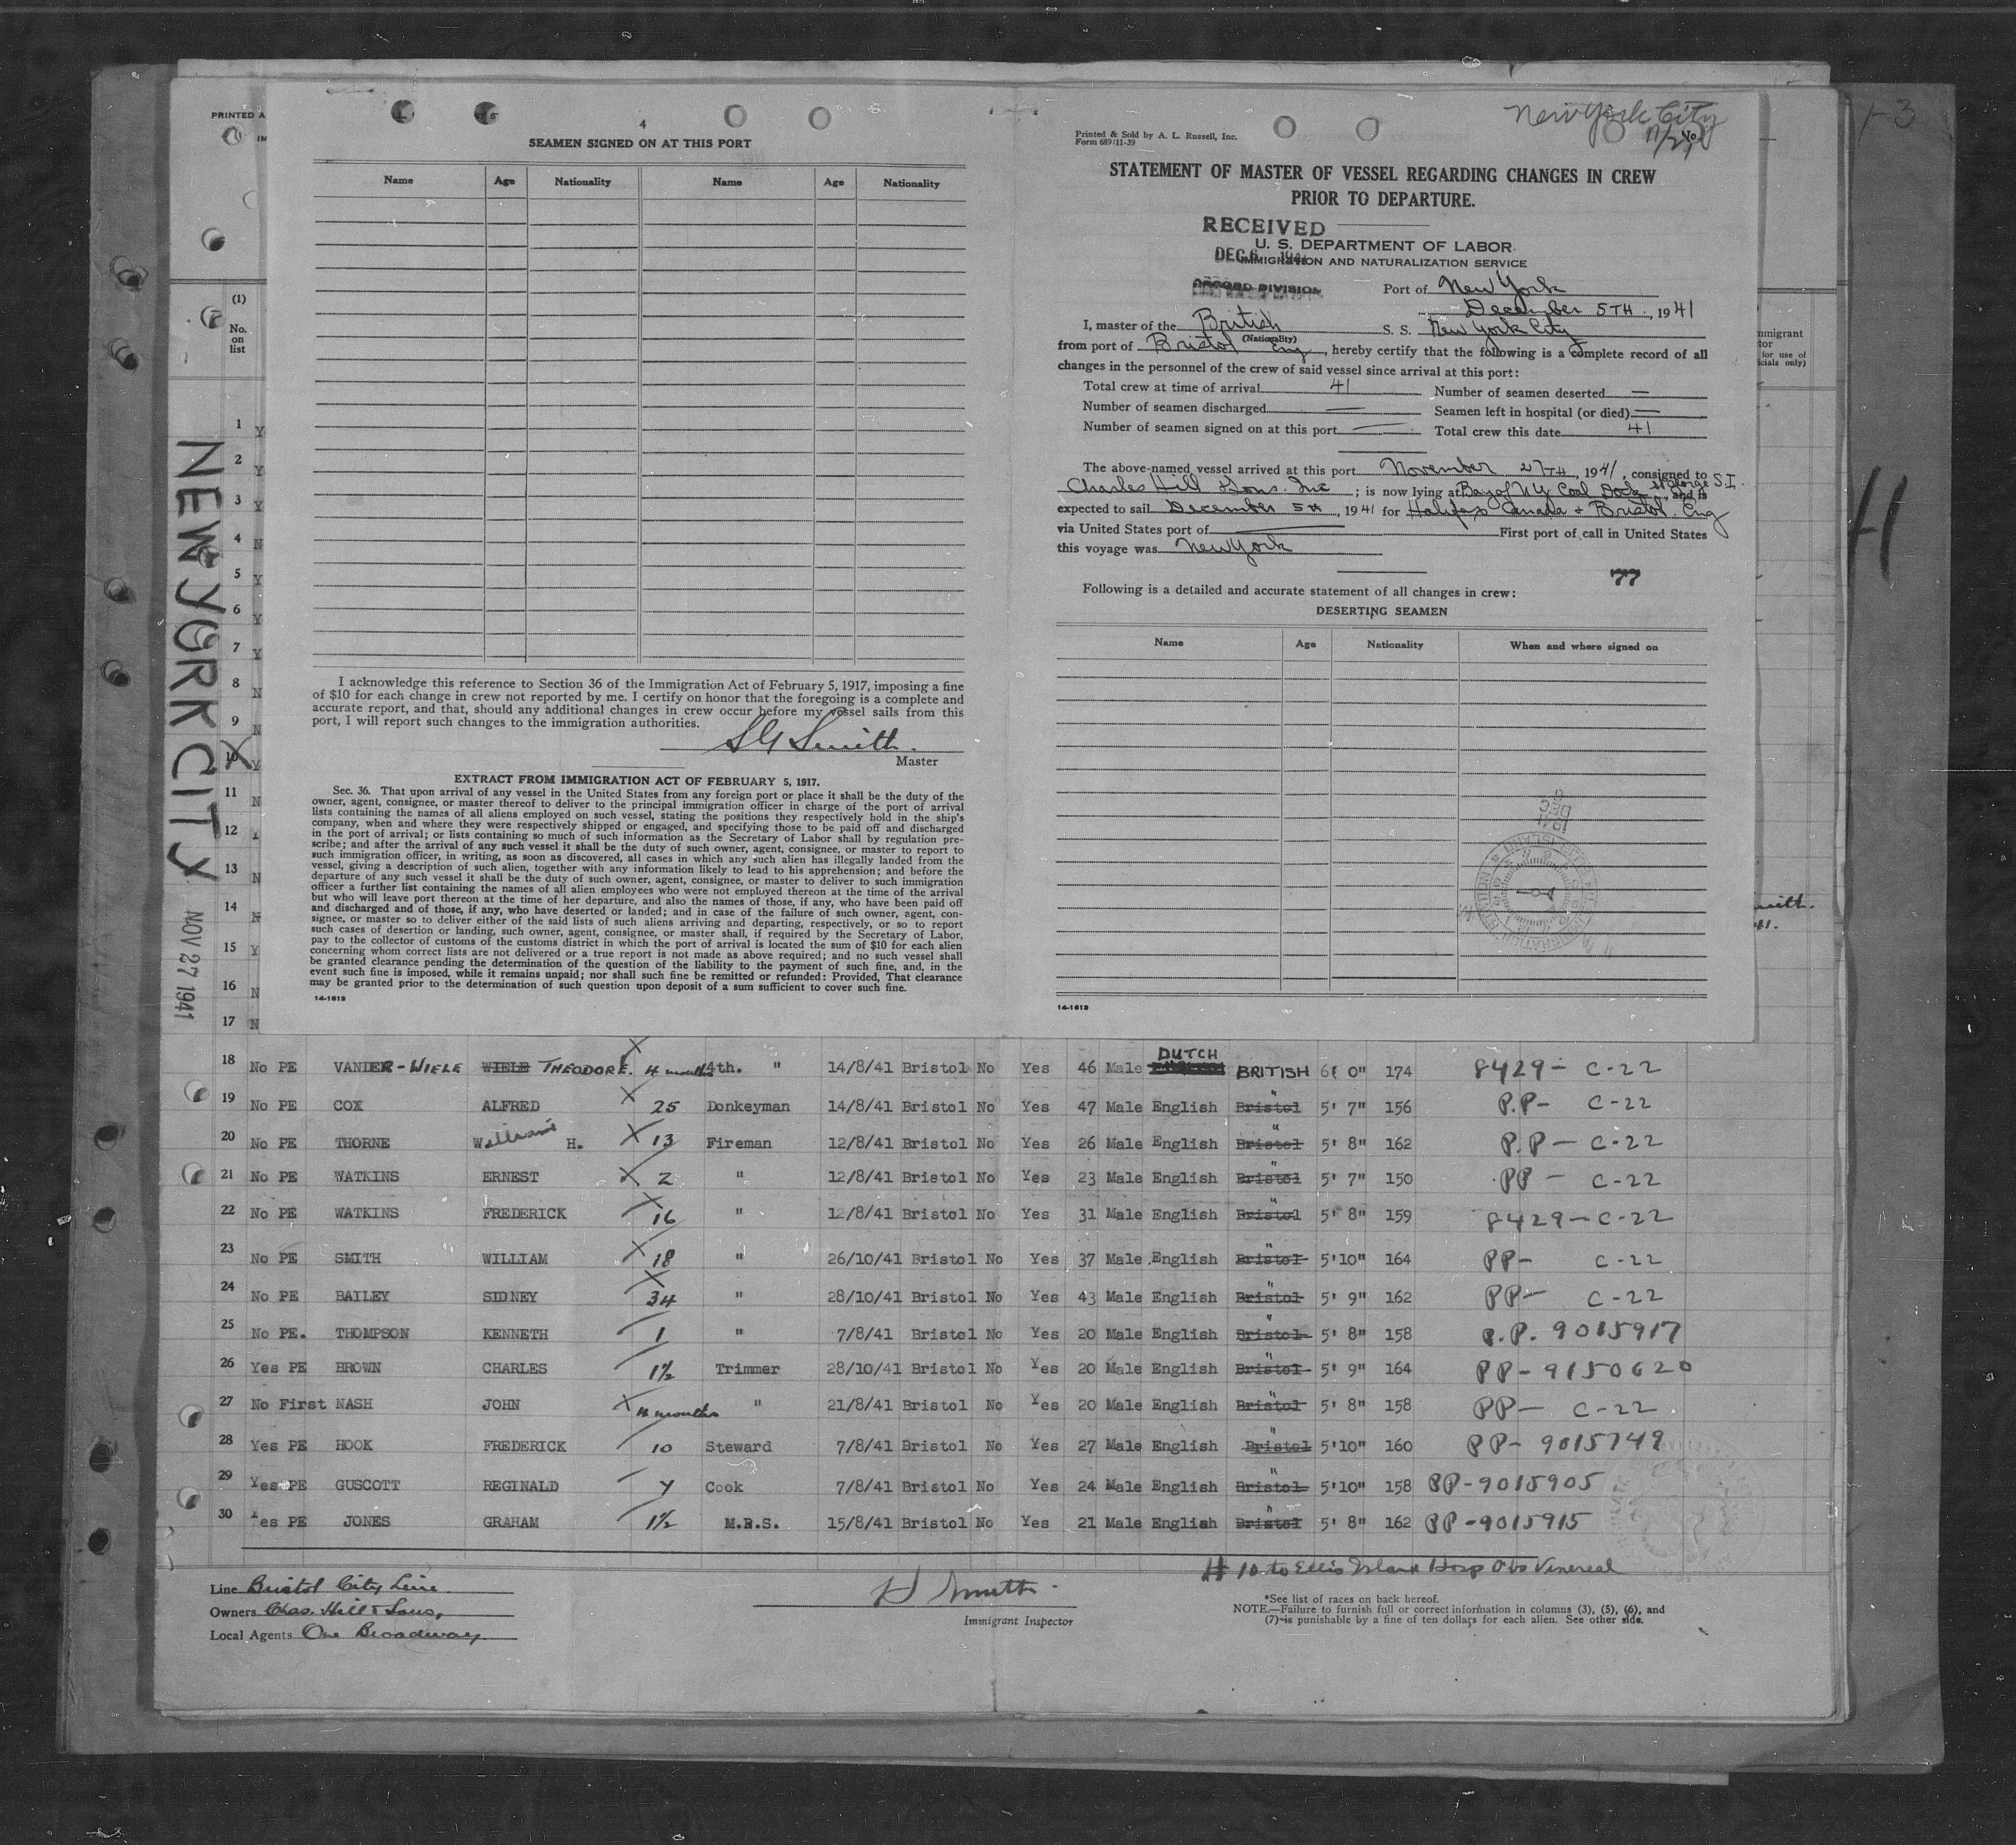 PRINTED A
IM
(1)
No.
on
list
1 Y
2 Y
3 Y
4 N
5 Y
6 Y
7 Y
8 N
9 N
10 Y
11 N
12
13 N
14 N
15 Y
16 N
17 N
NEW YORK CITY
NOV 27 1941
4
SEAMEN SIGNED ON AT THIS PORT
Name Age Nationality Name Age Nationality
I acknowledge this reference to Section 36 of the Immigration Act of February 5, 1917, imposing a fine
of $10 for each change in crew not reported by me. I certify on honor that the foregoing is a complete and
accurate report, and that, should any additional changes in crew occur before my vessel sails from this
port, I will report such changes to the immigration authorities.
SG Smith.
Master
EXTRACT FROM IMMIGRATION ACT OF FEBRUARY 5, 1917.
Sec. 36. That upon arrival of any vessel in the United States from any foreign port or place it shall be the duty of the
owner, agent, consignee, or master thereof to deliver to the principal immigration officer in charge of the port of arrival
lists containing the names of all aliens employed on such vessel, stating the positions they respectively hold in the ship's
company, when and where they were respectively shipped or engaged, and specifying those to be paid off and discharged
in the port of arrival; or lists containing so much of such information as the Secretary of Labor shall by regulation pre-
scribe; and after the arrival of any such vessel it shall be the duty of such owner, agent, consignee, or master to report to
such immigration officer, in writing, as soon as discovered, all cases in which any such alien has illegally landed from the
vessel, giving a description of such alien, together with any information likely to lead to his apprehension; and before the
departure of any such vessel it shall be the duty of such owner, agent, consignee, or master to deliver to such immigration
officer a further list containing the names of all alien employees who were not employed thereon at the time of the arrival
but who will leave port thereon at the time of her departure, and also the names of those, if any, who have been paid off
and discharged and of those, if any, who have deserted or landed; and in case of the failure of such owner, agent, con-
signee, or master so to deliver either of the said lists of such aliens arriving and departing, respectively, or so to report
such cases of desertion or landing, such owner, agent, consignee, or master shall, if required by the Secretary of Labor,
pay to the collector of customs of the customs district in which the port of arrival is located the sum of $10 for each alien
concerning whom correct lists are not delivered or a true report is not made as above required; and no such vessel shall
be granted clearance pending the determination of the question of the liability to the payment of such fine, and, in the
event such fine is imposed, while it remains unpaid; nor shall such fine be remitted or refunded: Provided, That clearance
may be granted prior to the determination of such question upon deposit of a sum sufficient to cover such fine.
14-1613
New York City
Printed & Sold by A. L. Russell, Inc.
Form 689 11-39
No.
STATEMENT OF MASTER OF VESSEL REGARDING CHANGES IN CREW
PRIOR TO DEPARTURE.
RECEIVED
U. S. DEPARTMENT OF LABOR
DEC 6 1941
IMMIGRATION AND NATURALIZATION SERVICE
RECORD DIVISION
Port of New York
December 5TH, 1941
I, master of the British S. S. New York City
(Nationality)
from port of Bristol Eng, hereby certify that the following is a complete record of all
changes in the personnel of the crew of said vessel since arrival at this port:
Total crew at time of arrival 41 Number of seamen deserted —
Number of seamen discharged — Seamen left in hospital (or died) —
Number of seamen signed on at this port — Total crew this date 41
The above-named vessel arrived at this port November 27TH, 1941, consigned to
Charles Hill & Sons. Inc ; is now lying at Bay of NY Coal Dock St George S.I., and is
expected to sail December 5th, 1941 for Halifax Canada & Bristol. Eng
via United States port of — First port of call in United States
this voyage was New York
77
Following is a detailed and accurate statement of all changes in crew:
DESERTING SEAMEN
Name Age Nationality When and where signed on
1941
DEC
6
14-1613
1-3
H
mmigrant
tor
for use of
icials only)
mith.
41.
18 No PE VANDER-WIELE WIELE THEODORE. X 4 months 4th. " 14/8/41 Bristol No Yes 46 Male DUTCH BRITISH 6' 0" 174 8429- C-22
19 No PE COX ALFRED X 25 Donkeyman 14/8/41 Bristol No Yes 47 Male English Bristol " 5' 7" 156 P.P- C-22
20 No PE THORNE William H. X 13 Fireman 12/8/41 Bristol No Yes 26 Male English Bristol " 5' 8" 162 P.P- C-22
21 No PE WATKINS ERNEST X 2 " 12/8/41 Bristol No Yes 23 Male English Bristol " 5' 7" 150 PP- C-22
22 No PE WATKINS FREDERICK X 16 " 12/8/41 Bristol No Yes 31 Male English Bristol " 5' 8" 159 8429-C-22
23 No PE SMITH WILLIAM X 18 " 26/10/41 Bristol No Yes 37 Male English Bristol " 5'10" 164 PP- C-22
24 No PE BAILEY SIDNEY X 34 " 28/10/41 Bristol No Yes 43 Male English Bristol " 5' 9" 162 PP- C-22
25 No PE. THOMPSON KENNETH 1 " 7/8/41 Bristol No Yes 20 Male English Bristol " 5' 8" 158 P.P. 9015917
26 Yes PE BROWN CHARLES 1½ Trimmer 28/10/41 Bristol No Yes 20 Male English Bristol " 5' 9" 164 PP-9150620
27 No First NASH JOHN X 4 months " 21/8/41 Bristol No Yes 20 Male English Bristol " 5' 8" 158 PP- C-22
28 Yes PE HOOK FREDERICK 10 Steward 7/8/41 Bristol No Yes 27 Male English Bristol " 5'10" 160 PP-9015749
29 Yes PE GUSCOTT REGINALD 7 Cook 7/8/41 Bristol No Yes 24 Male English Bristol " 5'10" 158 PP-9015905
30 Yes PE JONES GRAHAM 1½ M.R.S. 15/8/41 Bristol No Yes 21 Male English Bristol " 5' 8" 162 PP-9015915
# 10 to Ellis Island Hosp Obs Venereal
Line Bristol City Line.
Owners Chas. Hill & Sons,
Local Agents One Broadway
H Smith.
Immigrant Inspector
*See list of races on back hereof.
NOTE.—Failure to furnish full or correct information in columns (3), (5), (6), and
(7) is punishable by a fine of ten dollars for each alien. See other side.